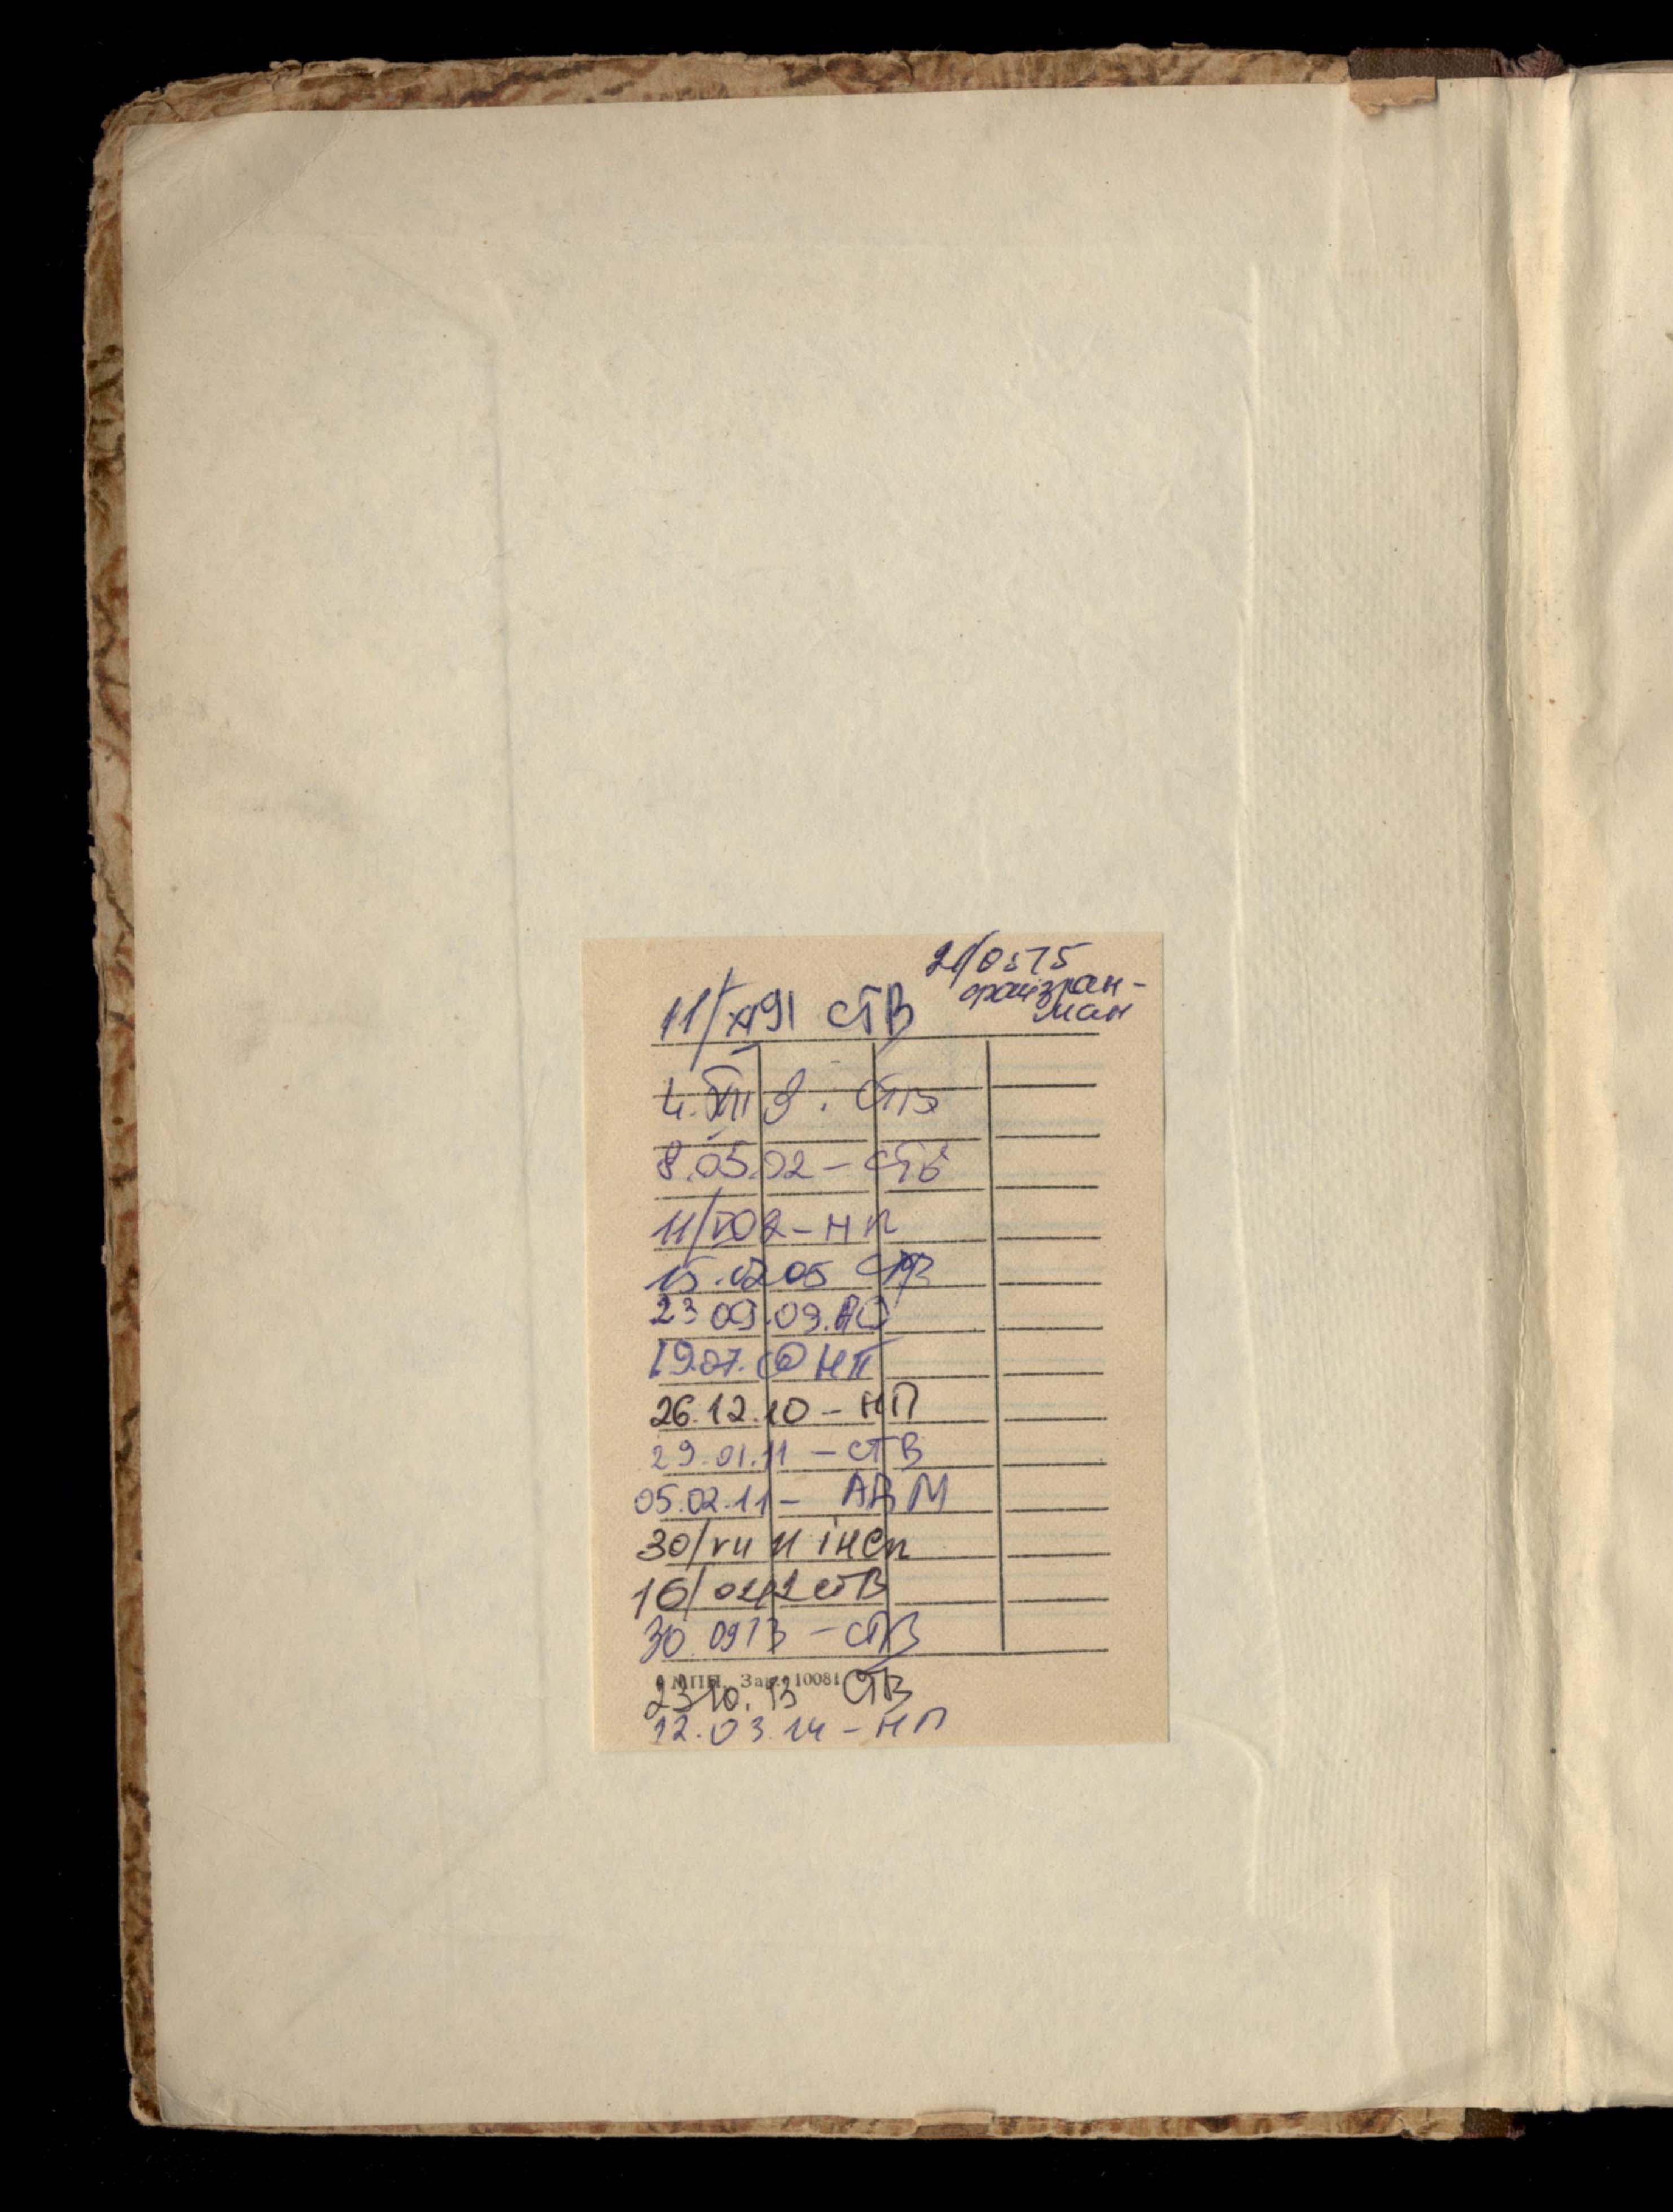 21/0575
11/XI 91 СТВ
ман
4. VIII 9 . СТВ
8.05.02 – СТВ
11/V 02 – НП
15.02 05 СТВ
23 09.09.
19.07. НП
26.12.10 – НП
29.01.11 – СТВ
05.02.11 – АВМ
30/VII 11 інсп
16/02 12 СТВ
30 09 13 – СТВ
МПП. Зак. 10081
23 10. 13 СТВ
12.03.14 – НП